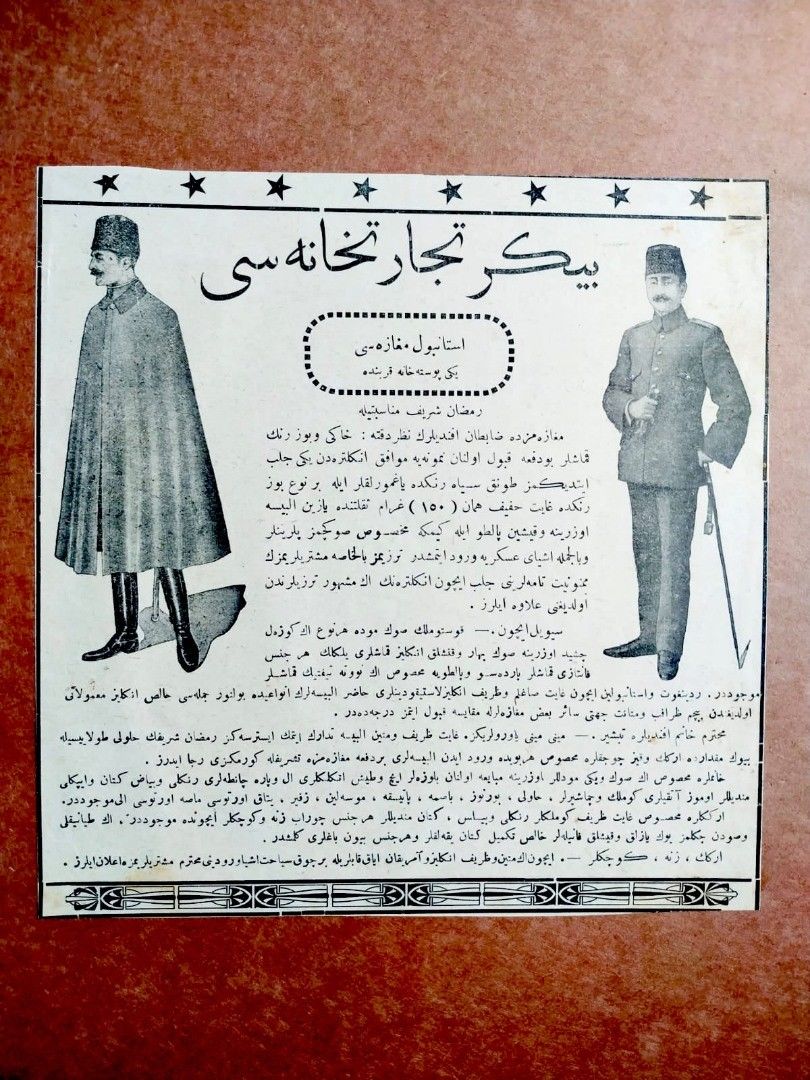 بيكر تجارتخانه سى
استانبول مغازه سى
يكى پوسته خانه قربنده
رمضان شريف مناسبتيله
مغازه مزده ضابطان افنديلرك نظر دقته : خاكى وبوز رنك
قماشلر بودفعه قبول اولنان نمونه يه موافق انكلتره دن يكى جلب
ايتديكمز طونق سياه رنكده ياغمورلقلر ايله بر نوع بوز
رنكده غايت خفيف همان ( ١٥٠ ) غرام ثقلتنده يازين البيسه
اوزرينه وقيشين پالطو ايله كيمكه مخصوص صوكچمز پلرينلر
وبالجمله اشياى عسكريه ورود ايتمشدر ترزيمز بالخاصه مشتريلريمزك
ممنونيت تامه لرينى جلب ايچون انكلتره نك اك مشهور ترزيلرندن
اولديغنى علاوه ايلرز .
سيويل ايچون . — قوستوملك صوك موده هر نوع اك كوزل
چشيد اوزرينه صوك بهار وقيشلق انكليز قماشلرى يلكلك هر جنس
فانتازى قماشلر پاردەسو وپالطويه مخصوص اك نووته تيفتيك قماشلر
موجوددر . ردينغوت واستانبولين ايچون غايت صاغلم وظريف انكليز لاستيقوتينلرى حاضر البيسه لرك انواعيده بولنور جمله سى خالص انكليز معمولاتى
اولديغندن بيچم ظرافت ومتانت جهتى سائر بعض مغازه لرله مقايسه قبول ايتمز درجه ده در .
محترم خانم افنديلره تبشير . — مينى مينى ياوروليكز . غايت ظريف ومتين البيسه تدارك ايتمك ايسترسه كز رمضان شريفك حلولى طولاييسيله
بيوك مقدارده اركك وقيز چوجقلره مخصوص هر بويده ورود ايدن البيسه لرى بردفعه مغازه مزه تشريفله كورمكزى رجا ايدرز .
خانملره مخصوص اك صوك ويكى موده لر اوزرينه مبايعه اولنان بلوزلر ايچ وطيش اتكلكلرى ال وپاره چانطه لرى رنكلى وبياض كتان وايپكلى
منديللر اوموز آتقيلرى كوملك وچماشيرلر ، حاولى ، بورنوز ، باصمه ، پاتيسقه ، موسه لين ، زفير ، يتاق اورتوسى ماصه اورتوسى الى موجوددر .
اركلكلره مخصوص غايت ظريف كوملكلر رنكلى وبياض ، كتان منديللر هر جنس چوراب زنه وكوچكلر ايچونده موجوددر . اك طيانيقلى
وصودن چكلمز يوك يازلق وقيشلق فانيله لر خالص تكميل كتان يقه لقلر وهر جنس بيون باغلرى كلشدر .
اركك ، زنه ، كوچكلر — . ايچون اك متين وظريف انكليز و آمريقان اياق قابلريله بر چوق سياحت اشيا ورودينى محترم مشتريلريمزه اعلان ايلرز .